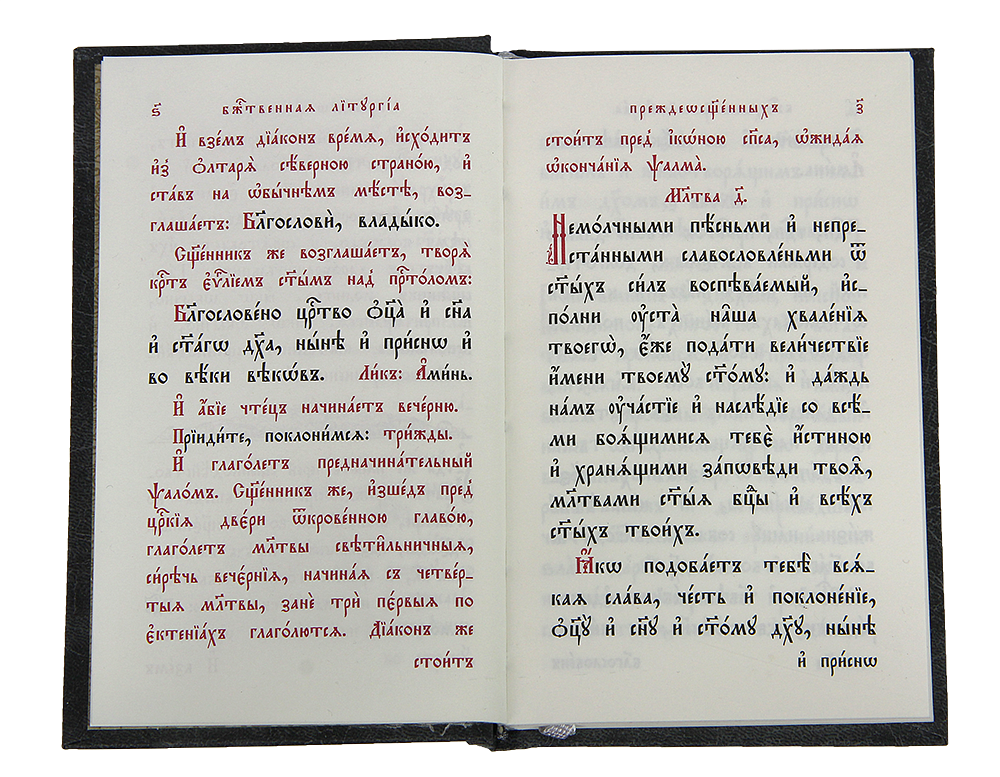 ѕ҃ бж҃твенная лїтꙋргі́а
И҆ взе́мъ дїа́конъ вре́мя, и҆схо́дитъ
и҆з̾ ѻ҆лтаря̀ сѣ́верною страно́ю, и҆
ста́въ на ѡ҆бы́чнѣмъ мѣ́стѣ, воз_
глаша́етъ: Блг҃ослови̂, влады́ко.
Сщ҃е́нникъ же возглаша́етъ, творя̀
крⷭ҇тъ є҆ѵⷢ҇лїемъ ст҃ы́мъ над̾ прⷭ҇то́ломъ:
Блг҃ослове́но црⷭ҇тво ѻ҆ц҃а̀ и҆ сн҃а
и҆ ст҃а́гѡ дх҃а, ны́нѣ и҆ при́снѡ и҆
во вѣ́ки вѣкѡ́въ. Ли́къ: А҆ми́нь.
И҆ а҆́бїе чте́цъ начина́етъ вече́рню.
Прїиди́те, поклони́мся: три́жды.
И҆ глаго́летъ предначина́тельный
ѱало́мъ. Сщ҃е́нникъ же, и҆зше́дъ пред̾
црⷭ҇кїя две́ри ѿкрове́нною главо́ю,
глаго́летъ мл҃твы свѣти́льничныя,
си́рѣчь вече́рнїя, начина́я съ четве́р_
тыя мл҃твы, занѐ трѝ пе́рвыя по
є҆ктенїа́хъ глаго́лются. Дїа́конъ же
стои́тъ
преждеѡсщ҃е́нныхъ з҃
стои́тъ пред̾ і҆кѡ́ною сп҃са, ѡ҆жида́я
ѡ҆конча́нїя ѱалма̀.
Мл҃тва д҃.
Немо́лчными пѣ́сньми и҆ непре_
ста́нными славословле́ньми ѿ
ст҃ы́хъ си́лъ воспѣва́емый, и҆с_
по́лни ѹ҆ста̀ на̑ша хвале́нїя
твоегѡ̀, є҆́же пода́ти вели́чествїе
и҆́мени твоемꙋ̀ ст҃о́мꙋ: и҆ да́ждь
на́мъ ѹ҆ча́стїе и҆ наслѣ́дїе со всѣ́_
ми боя́щимися тебѐ и҆́стиною
и҆ храня́щими за́пѡвѣди твоя̑,
мл҃твами ст҃ы́я бцⷣы и҆ всѣ́хъ
ст҃ы́хъ твои́хъ.
Ꙗ҆́кѡ подоба́етъ тебѣ̀ вся́_
кая сла́ва, че́сть и҆ поклоне́нїе,
ѻ҆ц҃ꙋ̀ и҆ сн҃ꙋ и҆ ст҃о́мꙋ дх҃ꙋ, ны́нѣ
и҆ при́снѡ